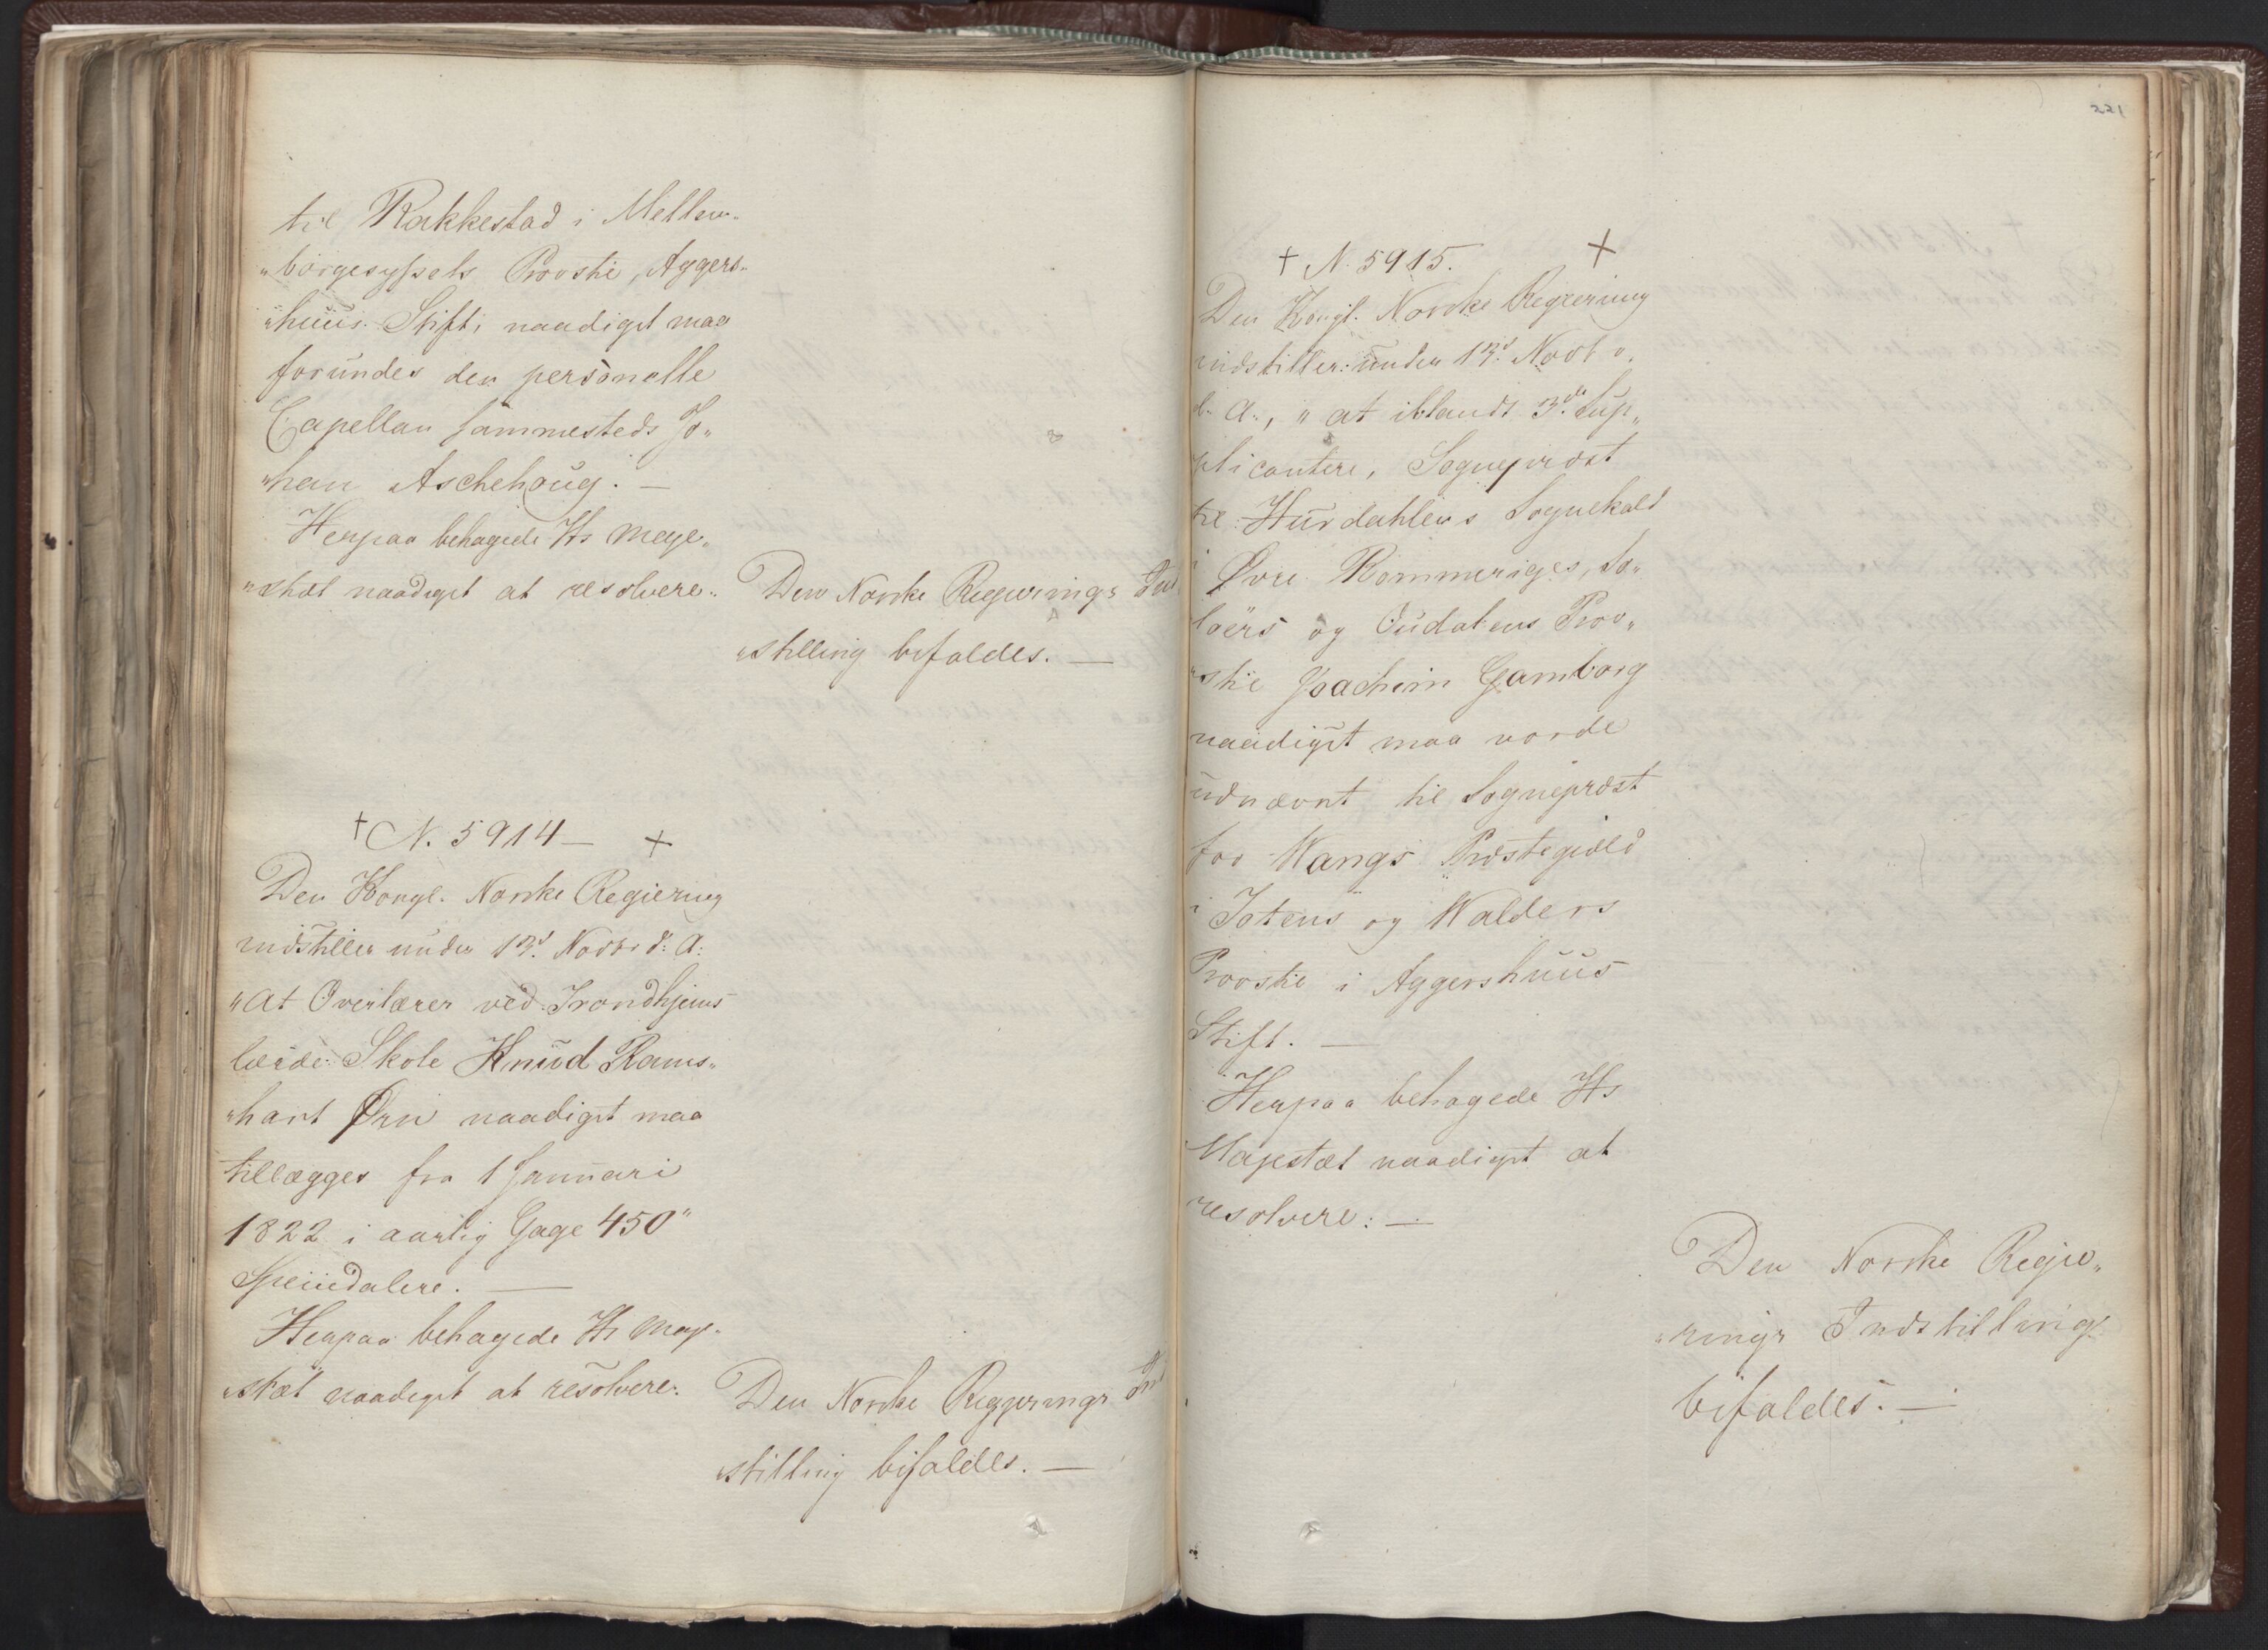 til Rakkestad i Mellem-
"borgesyssels Provstie, Aggers-
"huus Stift, naadigst maa
forundes den personelle
Capellan sammesteds Jo-
"han Aschehoug. —
Herpaa behagede Hs Maje-
"stæt naadigst at resolvere:
Den Norske Regjerings Ind
"stilling bifaldes. —
† N. 5914 — +
Den Kongl. Norske Regiering
indstiller under 13d Novbr d. A.
"At Overlærer ved Trondhjems
lærde Skole Knud Rams-
"hart Ørn naadigst maa
tillægges fra 1 Januari
1822 i aarlig Gage 450"
Speciedalere. —
Herpaa behagede Hs Maje-
"stæt naadigst at resolvere:
Den Norske Regjerings Ind
"stilling bifaldes. —
221
† N. 5915. +
Den Kongl. Norske Regiering
indstiller under 13d Novbr
d. A., "at iblandt 3de Sup-
plicantere, Sognepræst
til Hurdahlens Sognekald
i Øvre Rommeriges, So-
løers og Oudalens Prov-
"stie Joachim Gamborg
naadigst maa vorde
udnævnt til Sogneprest
for Wangs Præstegield
i Totens og Walders
Provstie i Aggershuus
Stift. —
Herpaa behagede Hs
Majestæt naadigst at
resolvere: —
Den Norske Regie-
"rings Indstilling
bifaldes. —